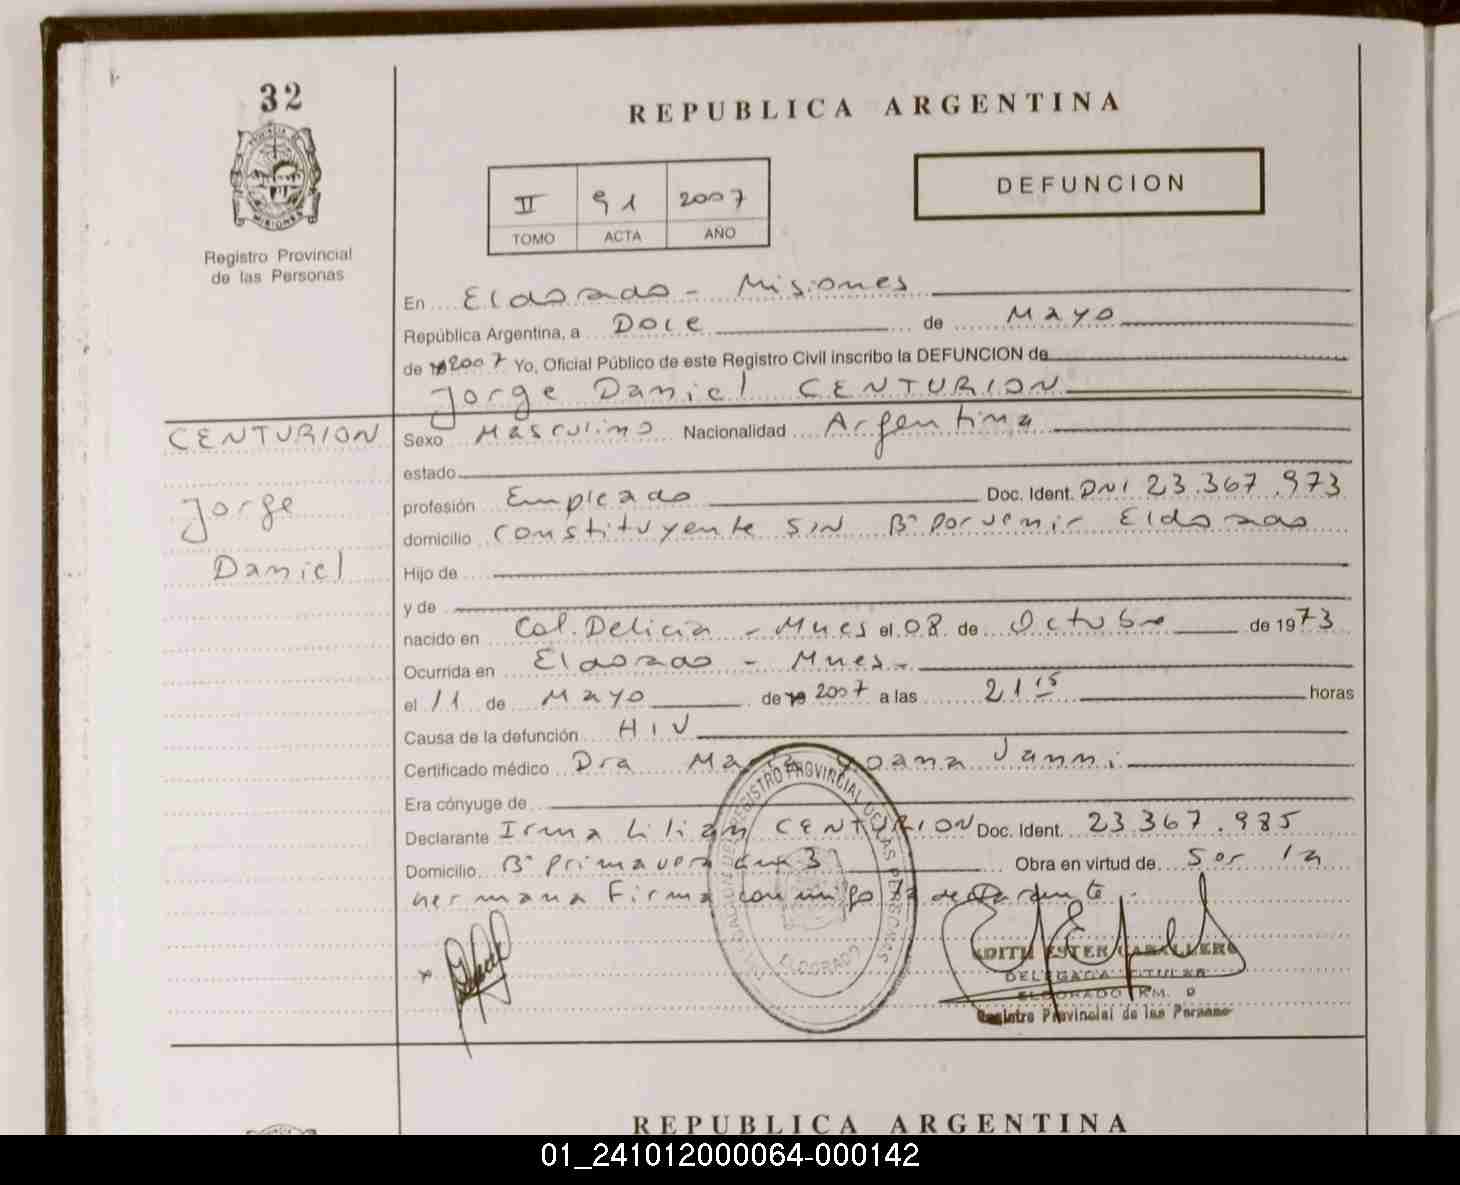 32
REPUBLICA ARGENTINA
DEFUNCION
II 91 2007
TOMO ACTA AÑO
Registro Provincial
de las Personas
En Eldorado - Misiones
República Argentina, a Doce de Mayo
de 19 2007 Yo, Oficial Público de este Registro Civil inscribo la DEFUNCION de
Jorge Daniel CENTURION
CENTURION
Jorge
Daniel
Sexo Masculino Nacionalidad Argentina
estado
profesión Empleado Doc. Ident. DNI 23.367.973
domicilio Constituyente S/N Bº Porvenir Eldorado
Hijo de
y de
nacido en Col. Delicia - Mnes el 08 de Octubre de 1973
Ocurrida en Eldorado - Mnes -
el 11 de Mayo de 19 2007 a las 21 15 horas
Causa de la defunción HIV
Certificado médico Dra María Joana Vanni
Era cónyuge de
Declarante Irma Lilian CENTURION Doc. Ident. 23 367.985
Domicilio Bº primavera km 3 Obra en virtud de ser la
hermana Firma conmigo la declarante.
REGISTRO PROVINCIAL DE LAS PERSONAS
ELDORADO
EDITH ESTER CABALLERO
DELEGADA TITULAR
ELDORADO KM. 9
Registro Provincial de las Personas
REPUBLICA ARGENTINA
01_241012000064-000142